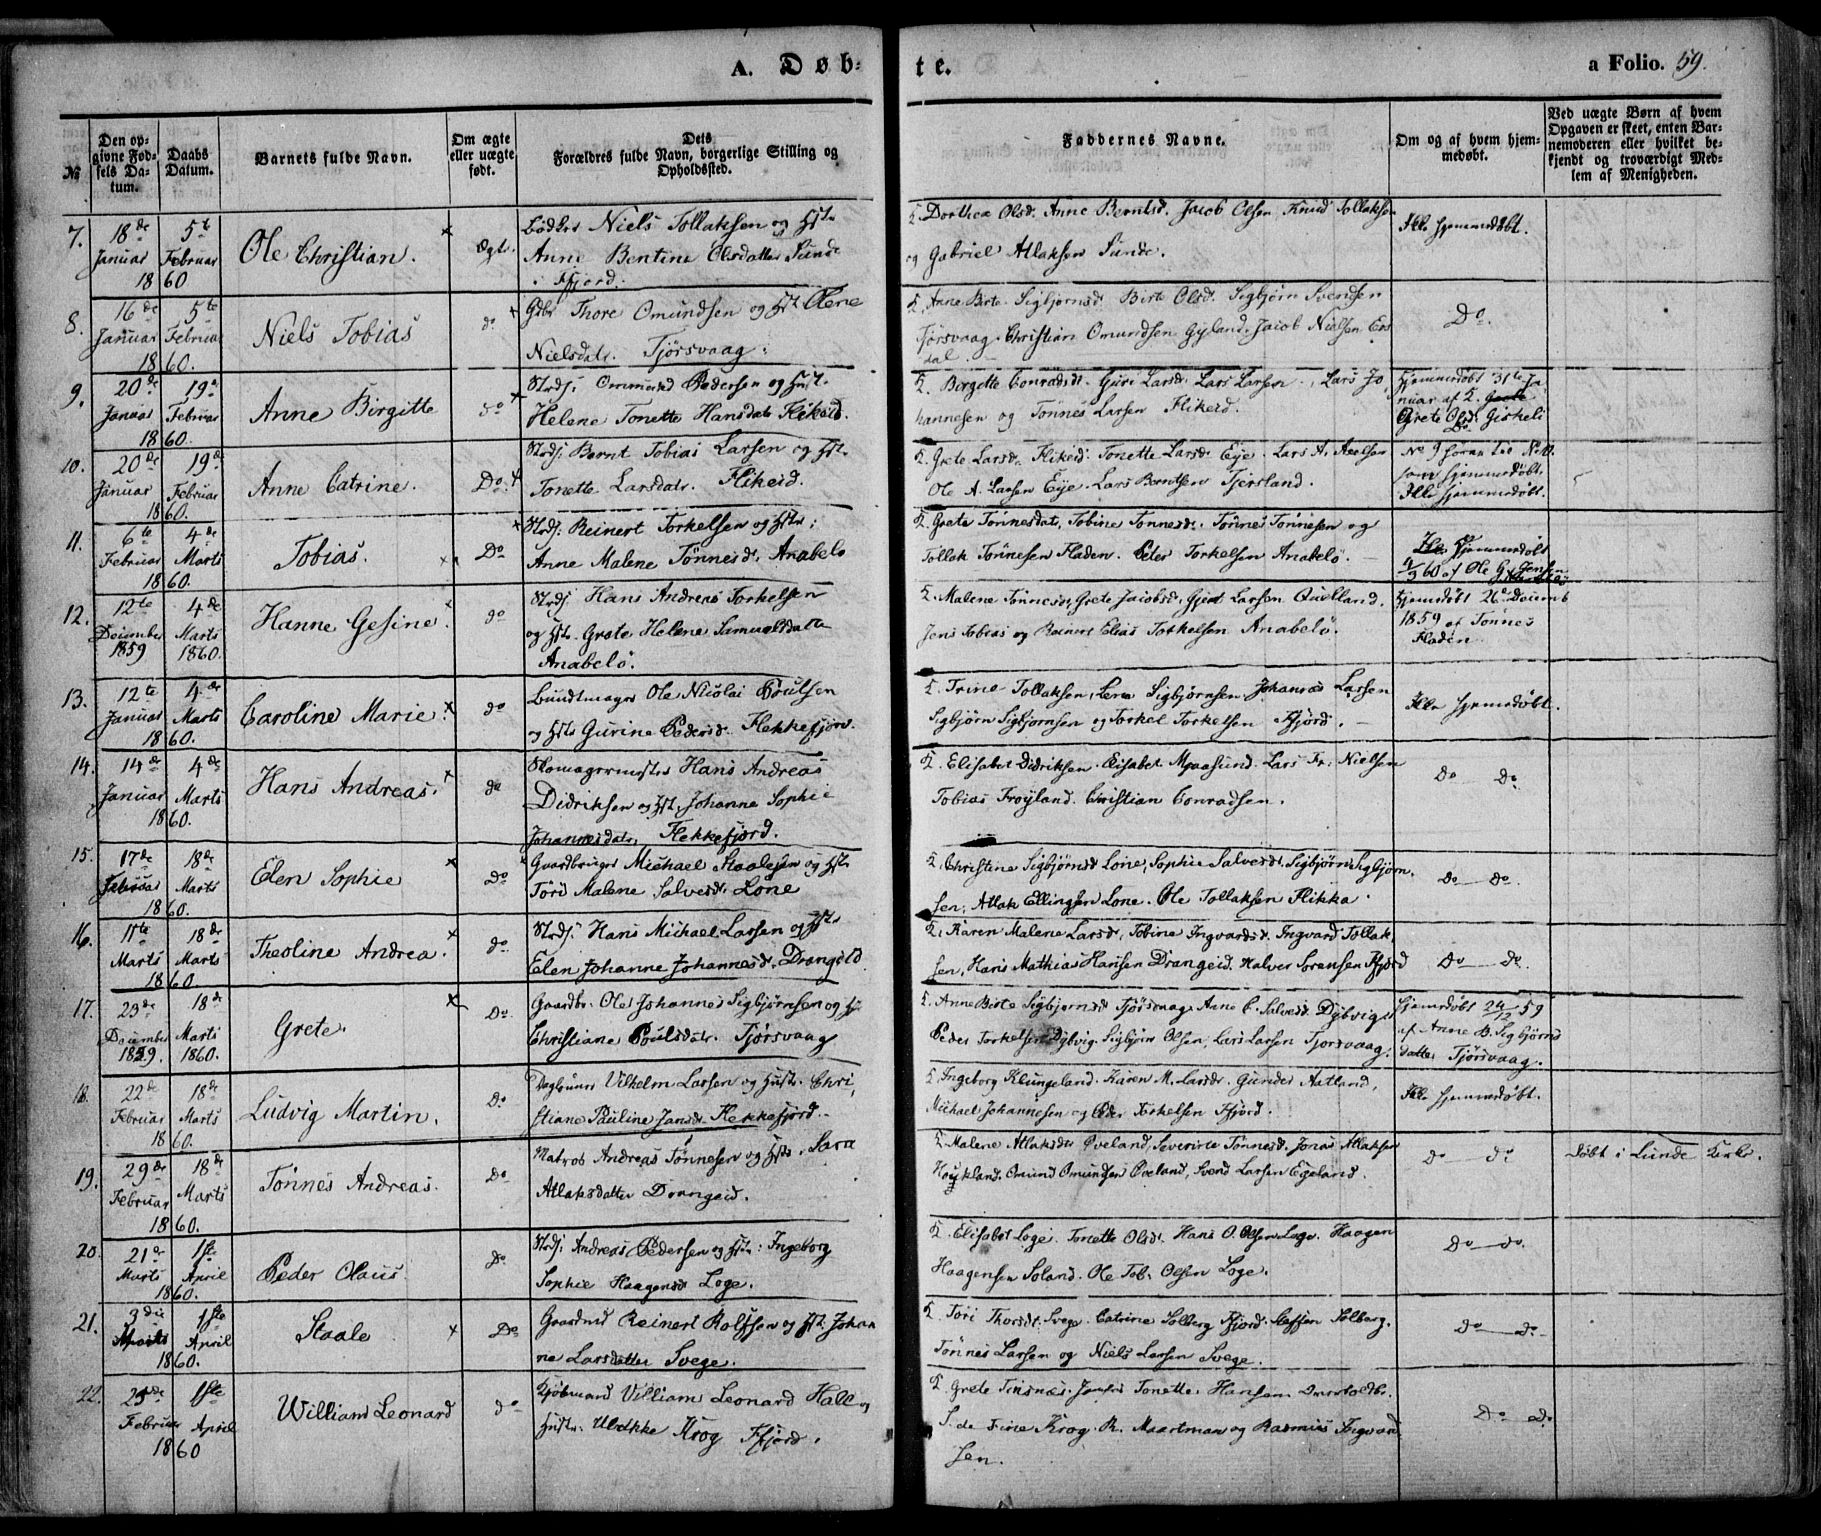 A. Døb-
te.
a Folio. 59.
№
Den op-
givne Fød-
sels Da-
tum.
Daabs
Datum.
Barnets fulde Navn.
Om ægte
eller uægte
født.
Dets
Forældres fulde Navn, borgerlige Stilling og
Opholdssted.
Faddernes Navne.
Om og af hvem hjem-
medøbt.
Ved uægte Børn af hvem
Opgaven er skeet, enten Bar-
nemoderen eller hvilket be-
kjendt og troværdigt Med-
lem af Menigheden.
7. 18de Januar 5te Februar 1860
Ole Christian.
Ægt.
Bødker Niels Tollaksen og Hstr
Anne Bentine Olsdatter Sunde
i Ffjord.
F. Dorthea Olsd. Anne Berntsd. Jacob Olsen Knud Tollaksen
og Gabriel Atlaksen Sunde.
Ikke hjemmedøbt.
8. 16de Januar 5te Februar 1860.
Niels Tobias
do
Gbr. Thore Omundsen og Hst. Olene
Nielsdatr. Tjørsvaag.
F. Anne Birte Sigbjørnsd. Birte Olsd. Sigbjørn Svendsen
Tjørsvaag. Christian Omundsen Gyland. Jacob Nielsen Ers
dal.
Do.
9. 20de Januar 19de Februar 1860.
Anne Birgitte
do
Strdsj. Ommund Pedersen og Hust.
Helene Tonette Hansdatr Flikeid.
F. Birgitte Conradsdr. Guri Larsd. Lars Larsen, Lars Jo
hannesen og Tønnes Larsen Flikeid.
Hjemmedøbt 31te Ja
nuar af F.
Grete Olsd. Girkeli
10. 20de Januar 19de Februar 1860.
Anne Catrine.
Do.
Strdsj. Bernt Tobias Larsen og Hst.
Tonette Larsdatr. Flikeid.
F. Grete Larsd. Flikeid. Tonette Larsd. Eye. Lars A. Axelsen
Ole A. Larsen Eye. Lars Berntsen Tjersland.
Ikke hjemmedøbt.
11. 6te Februar 4de Marts 1860.
Tobias.
Do
Strdsj. Reinert Torkelsen og Hstr.
Anne Malene Tønnesd. Anabelø
F. Grete Tønnesdat, Tobine Tønnesd. Tønnes Tønnesen og
Tollak Tønnesen Fladen. Peter Torkelsen Anabelø.
Hjemmedøbt
4/3 60 af Ole G. Jensen
12. 12te December 1859 4de Marts 1860.
Hanne Gesine.
do
Strdsj. Hans Andreas Torkelsen
og Hstr. Grete Helene Samuelsdattr
Anabelø.
F. Malene Tønnesd. Grete Jacobsd. Gjert Larsen Quelland.
Jens Tobias og Reinert Elias Torkelsen Anabelø.
Hjemmdøbt 26de Decemb
1859 af Tønnes
Fladen.
13. 12te Januar 4de Marts 1860.
Caroline Marie.
do
Bundtmager Ole Nicolai Poulsen
og Hstr Gurine Pedersd. Flekkefjord.
F. Trine Tollaksen, Lena Sigbjørnsen Johannes Larsen
Sigbjørn Sigbjørnsen og Torkel Torkelsen Ffjord.
Ikke hjemedøbt.
14. 14de Januar 4de Marts 1860.
Hans Andreas.
do
Skomagermester Hans Andreas
Didriksen og Hst. Johanne Sophie
Johannesdatr. Flekkefjord.
F. Elisabet Didriksen. Elisabet Mpaasund. Lars Fr. Nielsen
Tobias Frøyland. Christian Conradsen.
Do Do
15. 17de Februar 18de Marts 1860.
Elen Sophie
Do
Gaardbruger Michael Staalesen og Hstr
Tori Malene Salvesd. Lone
F. Christine Sigbjørnsd Lone, Sophie Salvesd. Sigbjørn Sigbjørn
sen, Atlak Ellingsen Lone. Ole Tollaksen Flikka.
Do Do.
16. 11te Marts 18de Marts 1860.
Theoline Andrea.
do.
Strdsj. Hans Michael Larsen og Hst
Elen Johanne Johannesd. Drangeid.
F. Karen Malene Larsd, Tobine Ingvardsd. Ingvard Tollak,
sen, Hans Mathias Hansen Drangeid. Halver Sørensen Ffjord
Do Do.
17. 23de December 1859. 18de Marts 1860.
Grete.
Do
Gaardbr. Ole Johannes Sigbjørnsen og Hu
Christiane Poulsdatr. Tjørsvaag
F. Anne Birte Sigbjørnsd Tjørsvaag. Anne C. Salvesd. Dybvig.
Peder Torkelsen Dybvig. Sigbjørn Olsen, Lars Larsen Tjørsvaag.
Hjemdøbt 24/12 59
af Anne B. Sigbjørns
datter Tjørsvaag.
18. 22de Februar 18de Marts 1860.
Ludvig Martin.
Do
Daglønner Vilhelm Larsen og Hustr. Chri
stiane Pauline Jansd. Flekkefjord.
F. Ingeborg Klungeland. Karen M. Larsdr. Gunder Aatland,
Michael Johannesen og Peder Torkelsen Ffjord.
Ikke hjemmedøbt.
19. 29de Februar 18de Marts 1860.
Tønnes Andreas.
Do
Matros Andreas Tønnesen og Hstr. Sara
Atlaksdatter Drangeid.
F. Malene Atlaksdtr Øveland, Severine Tønnesd. Jonas Atlaksen
Høykland. Omund Omundsen Øveland, Svend Larsen Egeland.
Do do
Døbt i Lunde Kirke.
20. 21de Marts 1ste April 1860.
Peder Olaus.
Do
Strdsj. Andreas Pedersen og Hstr. Ingeborg
Sophie Haagensd Loge.
F. Elisabet Loge. Tonette Olsd. Hans O. Olsen Loge. Haagen
Haagensen Soland. Ole Tob. Olsen Loge.
Do do.
21. 3die Marts 1ste April 1860.
Staale
Do
Gaardmd Reinert Rolfsen og Hst. Johan
ne Larsdatter Svege.
F. Tori Thorsd. Svege. Catrine Solberg Ffjord. Steffen Solberg.
Tønnes Larsen og Niels Larsen Svege.
Do Do
22. 25de Februar 1ste April 1860
William Leonard
do
Kjøbmand William Leonard Hall og
Hustr. Uldkke Krog Ffjord.
F. Grete Tinsnes. Jomfru Tonette Hansen
S. de Fine Krog. R. Maartman og Rasmus Ingvard
sen.
Do Do